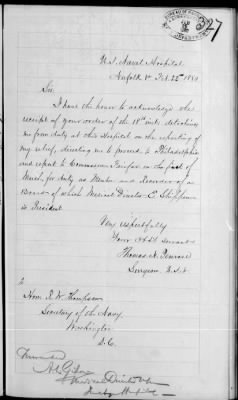 327
U.S. Naval Hospital
Norfolk Va Feb. 22d 1880
Sir
I have the honor to acknowledge the
receipt of your order of the 18th inst. detaching
me from duty at this Hospital on the reporting of
my relief, directing me to proceed to Philadelphia
and report to Commodore Fairfax on the first of
March, for duty as Member and Recorder of a
Board of which Medical Director E. Shippen
is President.
Very respectfully
Your Obdt servant
Thomas N. Penrose
Surgeon U.S.N
To
Hon. R. W. Thompson
Secretary of the Navy
Washington
D.C.
Forwarded
Medical Director
Hospital